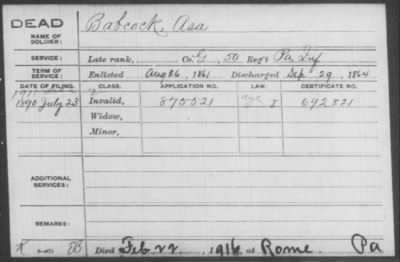 DEAD
NAME OF SOLDIER: Babcock, Asa
SERVICE: Late rank, Co. G, 50 Reg't Pa. Inf
TERM OF SERVICE: Enlisted Aug 26, 1861 Discharged Sep 29, 1864
DATE OF FILING. CLASS. APPLICATION NO. LAW. CERTIFICATE NO.
1890 July 23 Invalid, 875521 J 692821
Widow,
Minor,
ADDITIONAL SERVICES:
REMARKS:
Died Feb 22, 1916 at Rome Pa